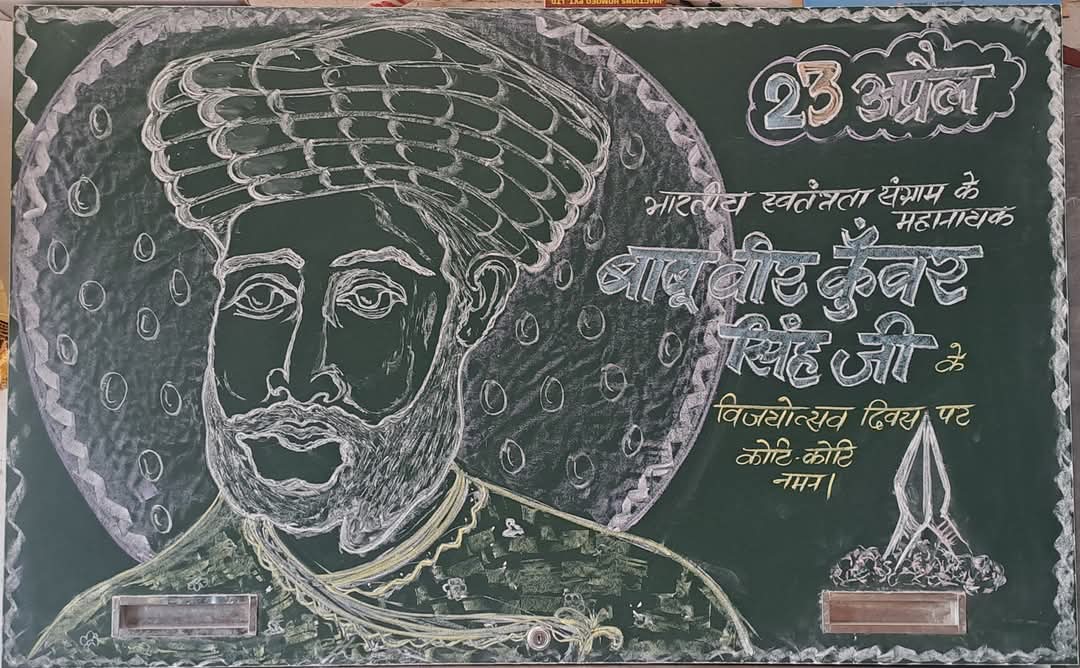 23 अप्रैल
भारतीय स्वतंत्रता संग्राम के
महानायक
बाबू वीर कुँवर
सिंह जी के
विजयोत्सव दिवस पर
कोटि-कोटि
नमन।